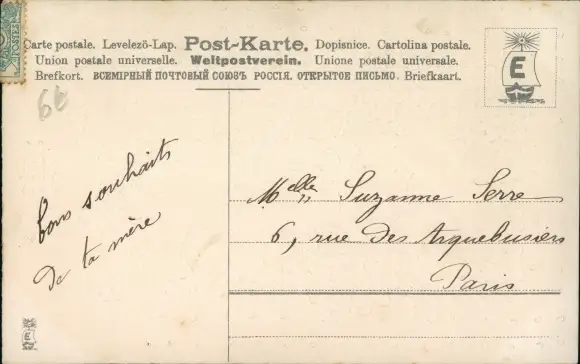 POSTES
Carte postale. Levelezö-Lap. Post-Karte. Dopisnice. Cartolina postale.
Union postale universelle. Weltpostverein. Unione postale universale.
Brefkort. ВСЕМІРНЫЙ ПОЧТОВЫЙ СОЮЗЪ РОССІЯ. ОТКРЫТОЕ ПИСЬМО. Briefkaart.
E
66
bons souhaits
de ta mère
Melle Suzanne Serre
6, rue des Arquebusiers
Paris
E